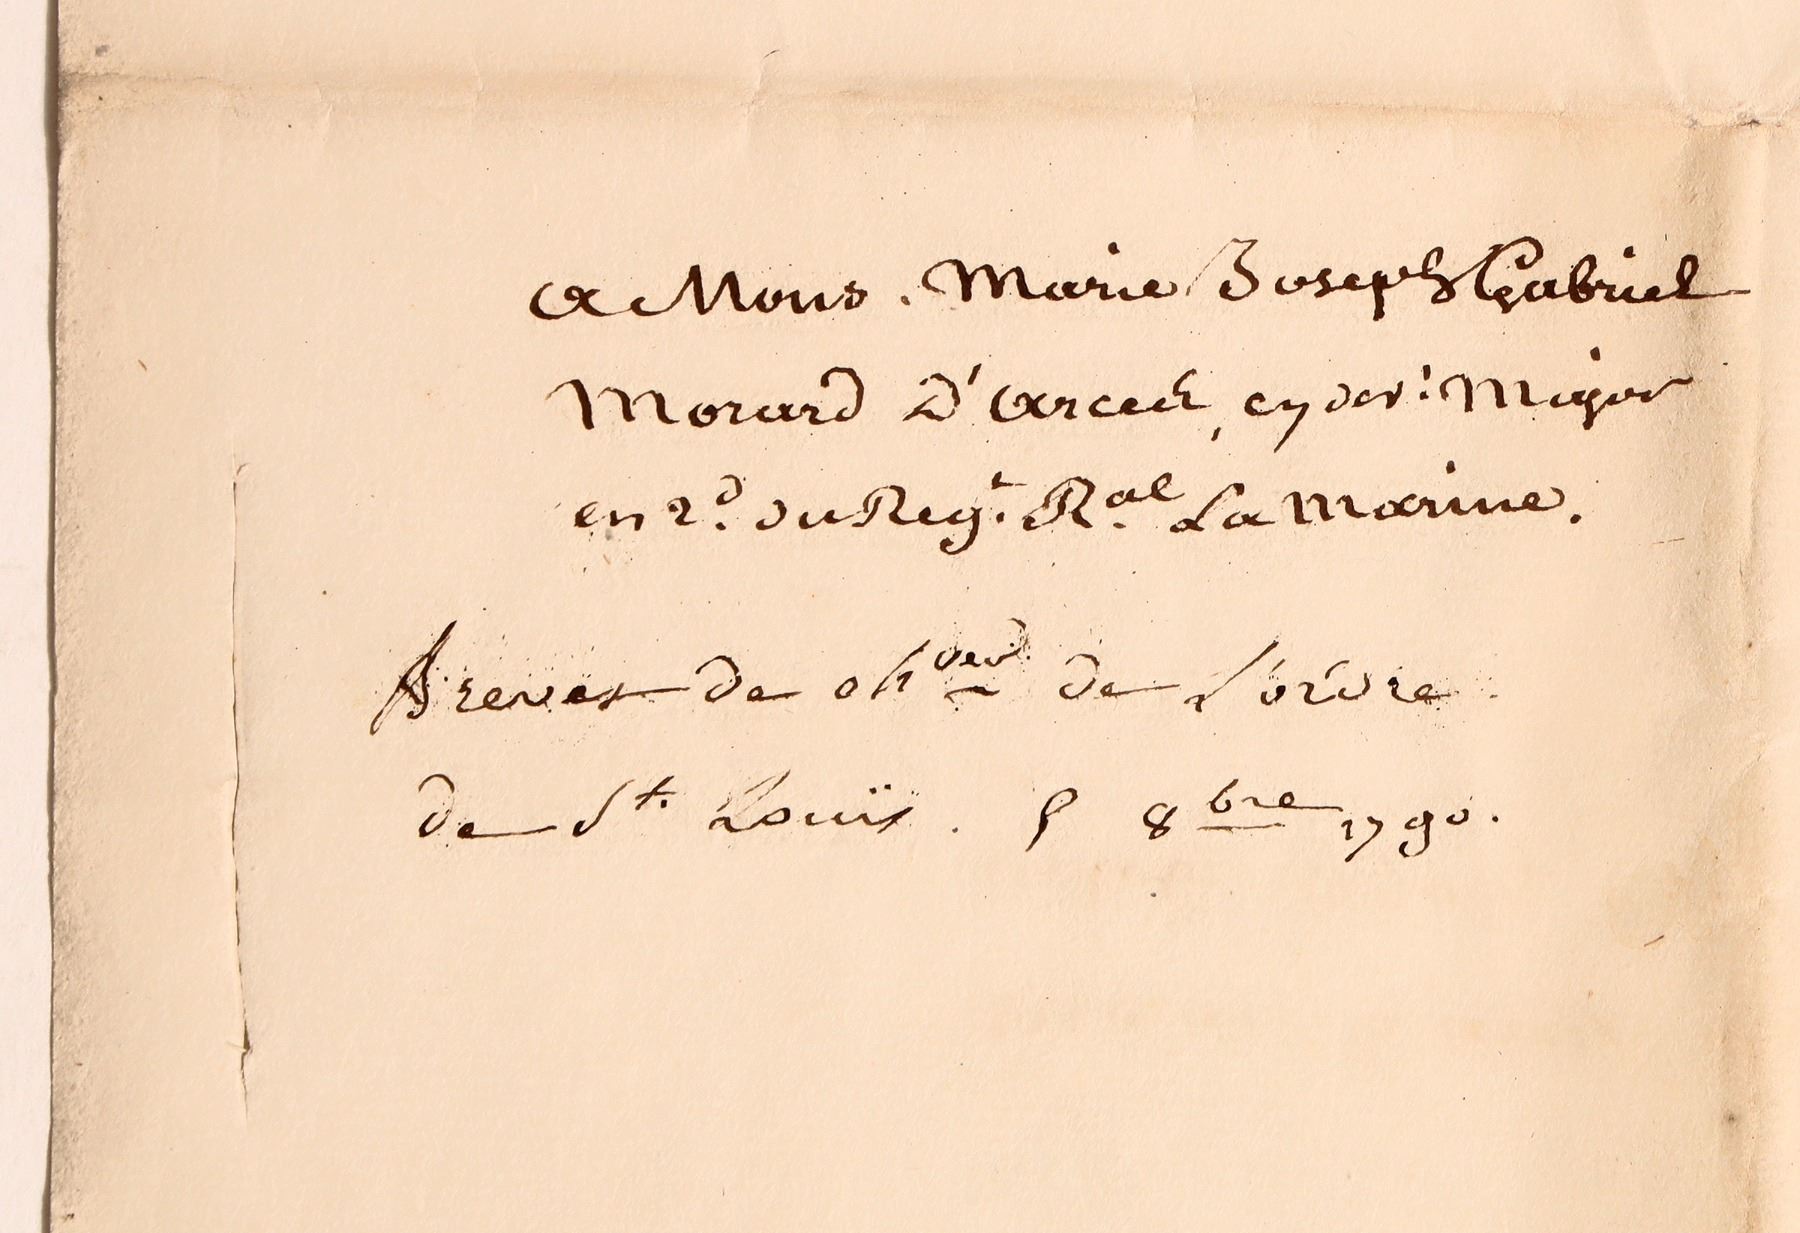 A Mons. Marie Joseph Gabriel
Morard D'Arces, cy devt. Major
en 2d. du Regt. Ral. La Marine.
Brevet de chver de L'ordre
de St. Louis. 8bre 1790.